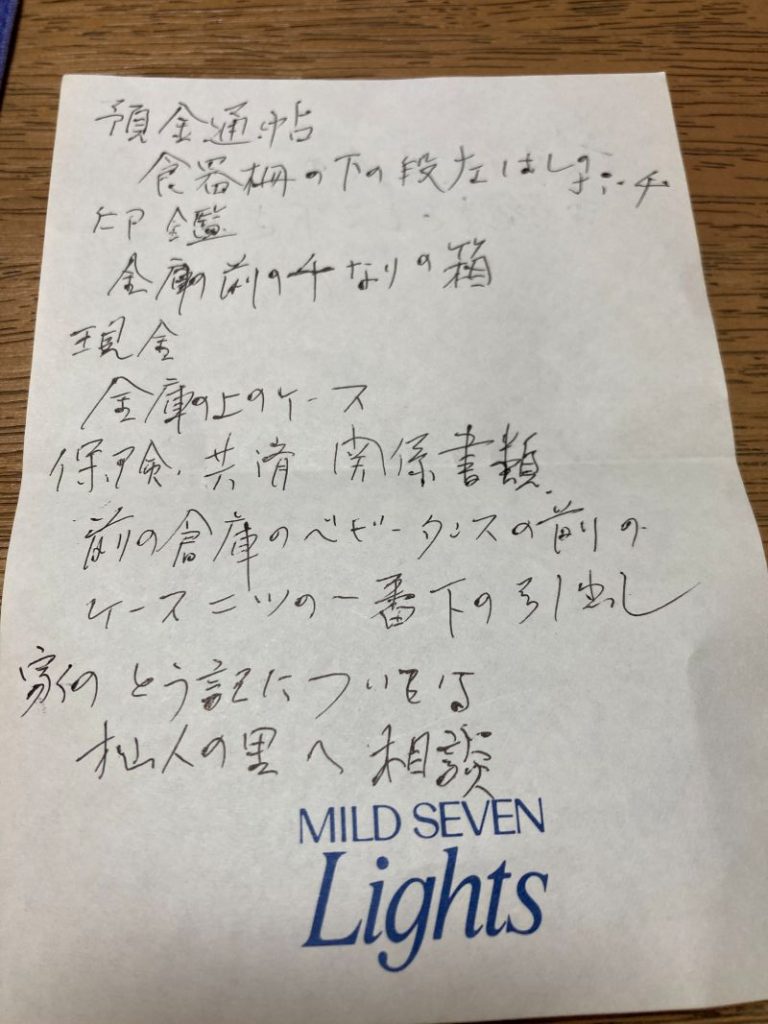 預金通帖
食器棚の下の段左はしのポーチ
印鑑
金庫の前の千なりの箱
現金
金庫の上のケース
保険、共済 関係書類
前の倉庫のベビータンスの前の
ケース二ツの一番下の引出し
家のとう記については
人の里へ相談
MILD SEVEN
Lights